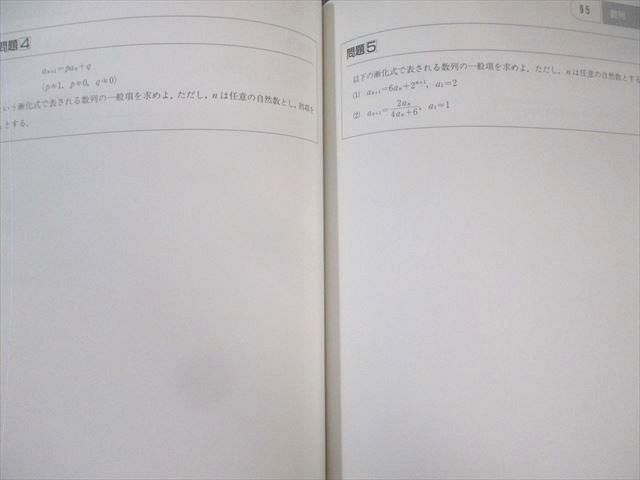 問題4
aₙ₊₁=paₙ+q
(p≠1, p≠0, q≠0)
いう漸化式で表される数列の一般項を求めよ．ただし，nは任意の自然数とし，初項を
とする．
§5 数列
問題5
以下の漸化式で表される数列の一般項を求めよ．ただし，nは任意の自然数とする
(1) aₙ₊₁=6aₙ+2ⁿ⁺¹, a₁=2
(2) aₙ₊₁=2aₙ/(4aₙ+6), a₁=1